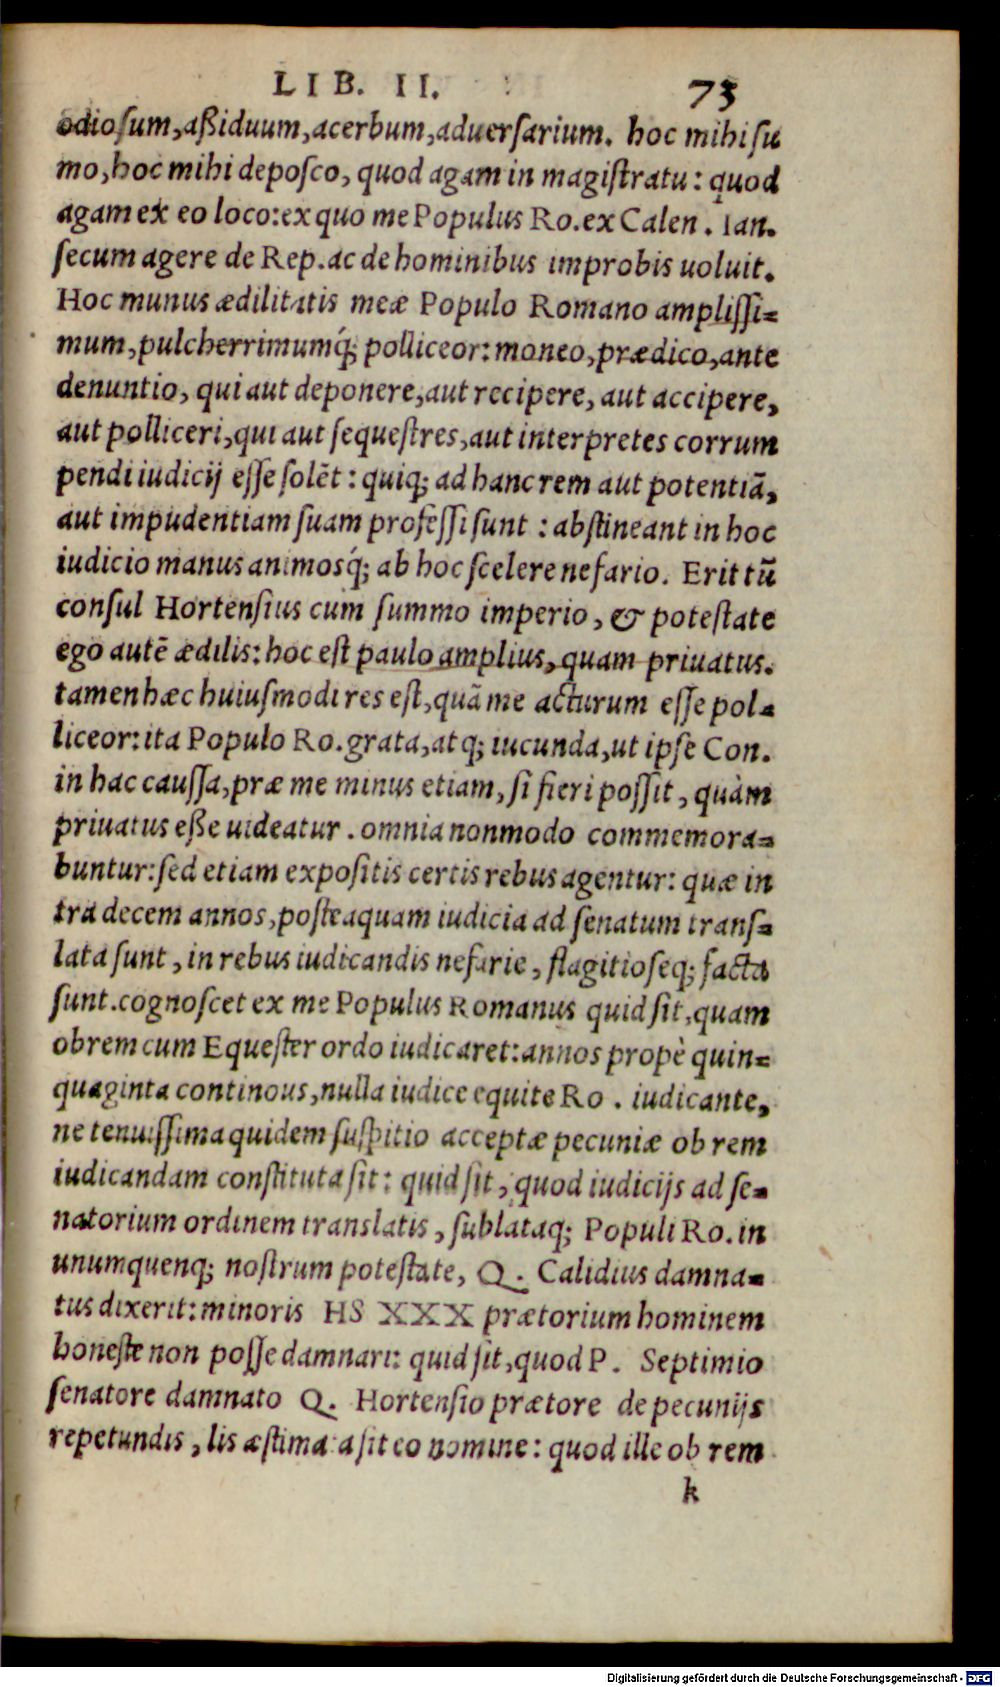 LIB. II. 73
odiosum,aßiduum,acerbum,aduersarium. hoc mihi su
mo,hoc mihi deposco, quod agam in magistratu: quod
agam ex eo loco:ex quo me Populus Ro.ex Calen. Ian.
secum agere de Rep.ac de hominibus improbis uoluit.
Hoc munus ædilitatis meæ Populo Romano amplissi=
mum,pulcherrimumq́; polliceor: moneo,prædico,ante
denuntio, qui aut deponere,aut recipere, aut accipere,
aut polliceri,qui aut sequestres,aut interpretes corrum
pendi iudicij esse solẽt: quiq; ad hanc rem aut potentiã,
aut impudentiam suam professi sunt: abstineant in hoc
iudicio manus animosq́; ab hoc scelere nefario. Erit tũ
consul Hortensius cum summo imperio, & potestate
ego autẽ ædilis: hoc est paulo amplius, quam priuatus.
tamen hæc huiusmodi res est,quã me acturum esse pol=
liceor:ita Populo Ro.grata,atq; iucunda,ut ipse Con.
in hac caussa,præ me minus etiam, si fieri possit, quàm
priuatus eße uideatur. omnia nonmodo commemora=
buntur:sed etiam expositis certis rebus agentur: quæ in
tra decem annos,posteaquam iudicia ad senatum trans=
lata sunt, in rebus iudicandis nefarie, flagitioseq; facta
sunt.cognoscet ex me Populus Romanus quid sit,quam
obrem cum Equester ordo iudicaret:annos propè quin=
quaginta continous,nulla iudice equite Ro. iudicante,
ne tenuissima quidem suspitio acceptæ pecuniæ ob rem
iudicandam constituta sit: quid sit, quod iudicijs ad se=
natorium ordinem translatis, sublataq; Populi Ro. in
unumquenq; nostrum potestate, Q. Calidius damna=
tus dixerit: minoris HS XXX prætorium hominem
honeste non posse damnari: quid sit,quod P. Septimio
senatore damnato Q. Hortensio prætore de pecunijs
repetundis, lis æstimata sit eo nomine: quod ille ob rem
k
Digitalisierung gefördert durch die Deutsche Forschungsgemeinschaft - DFG